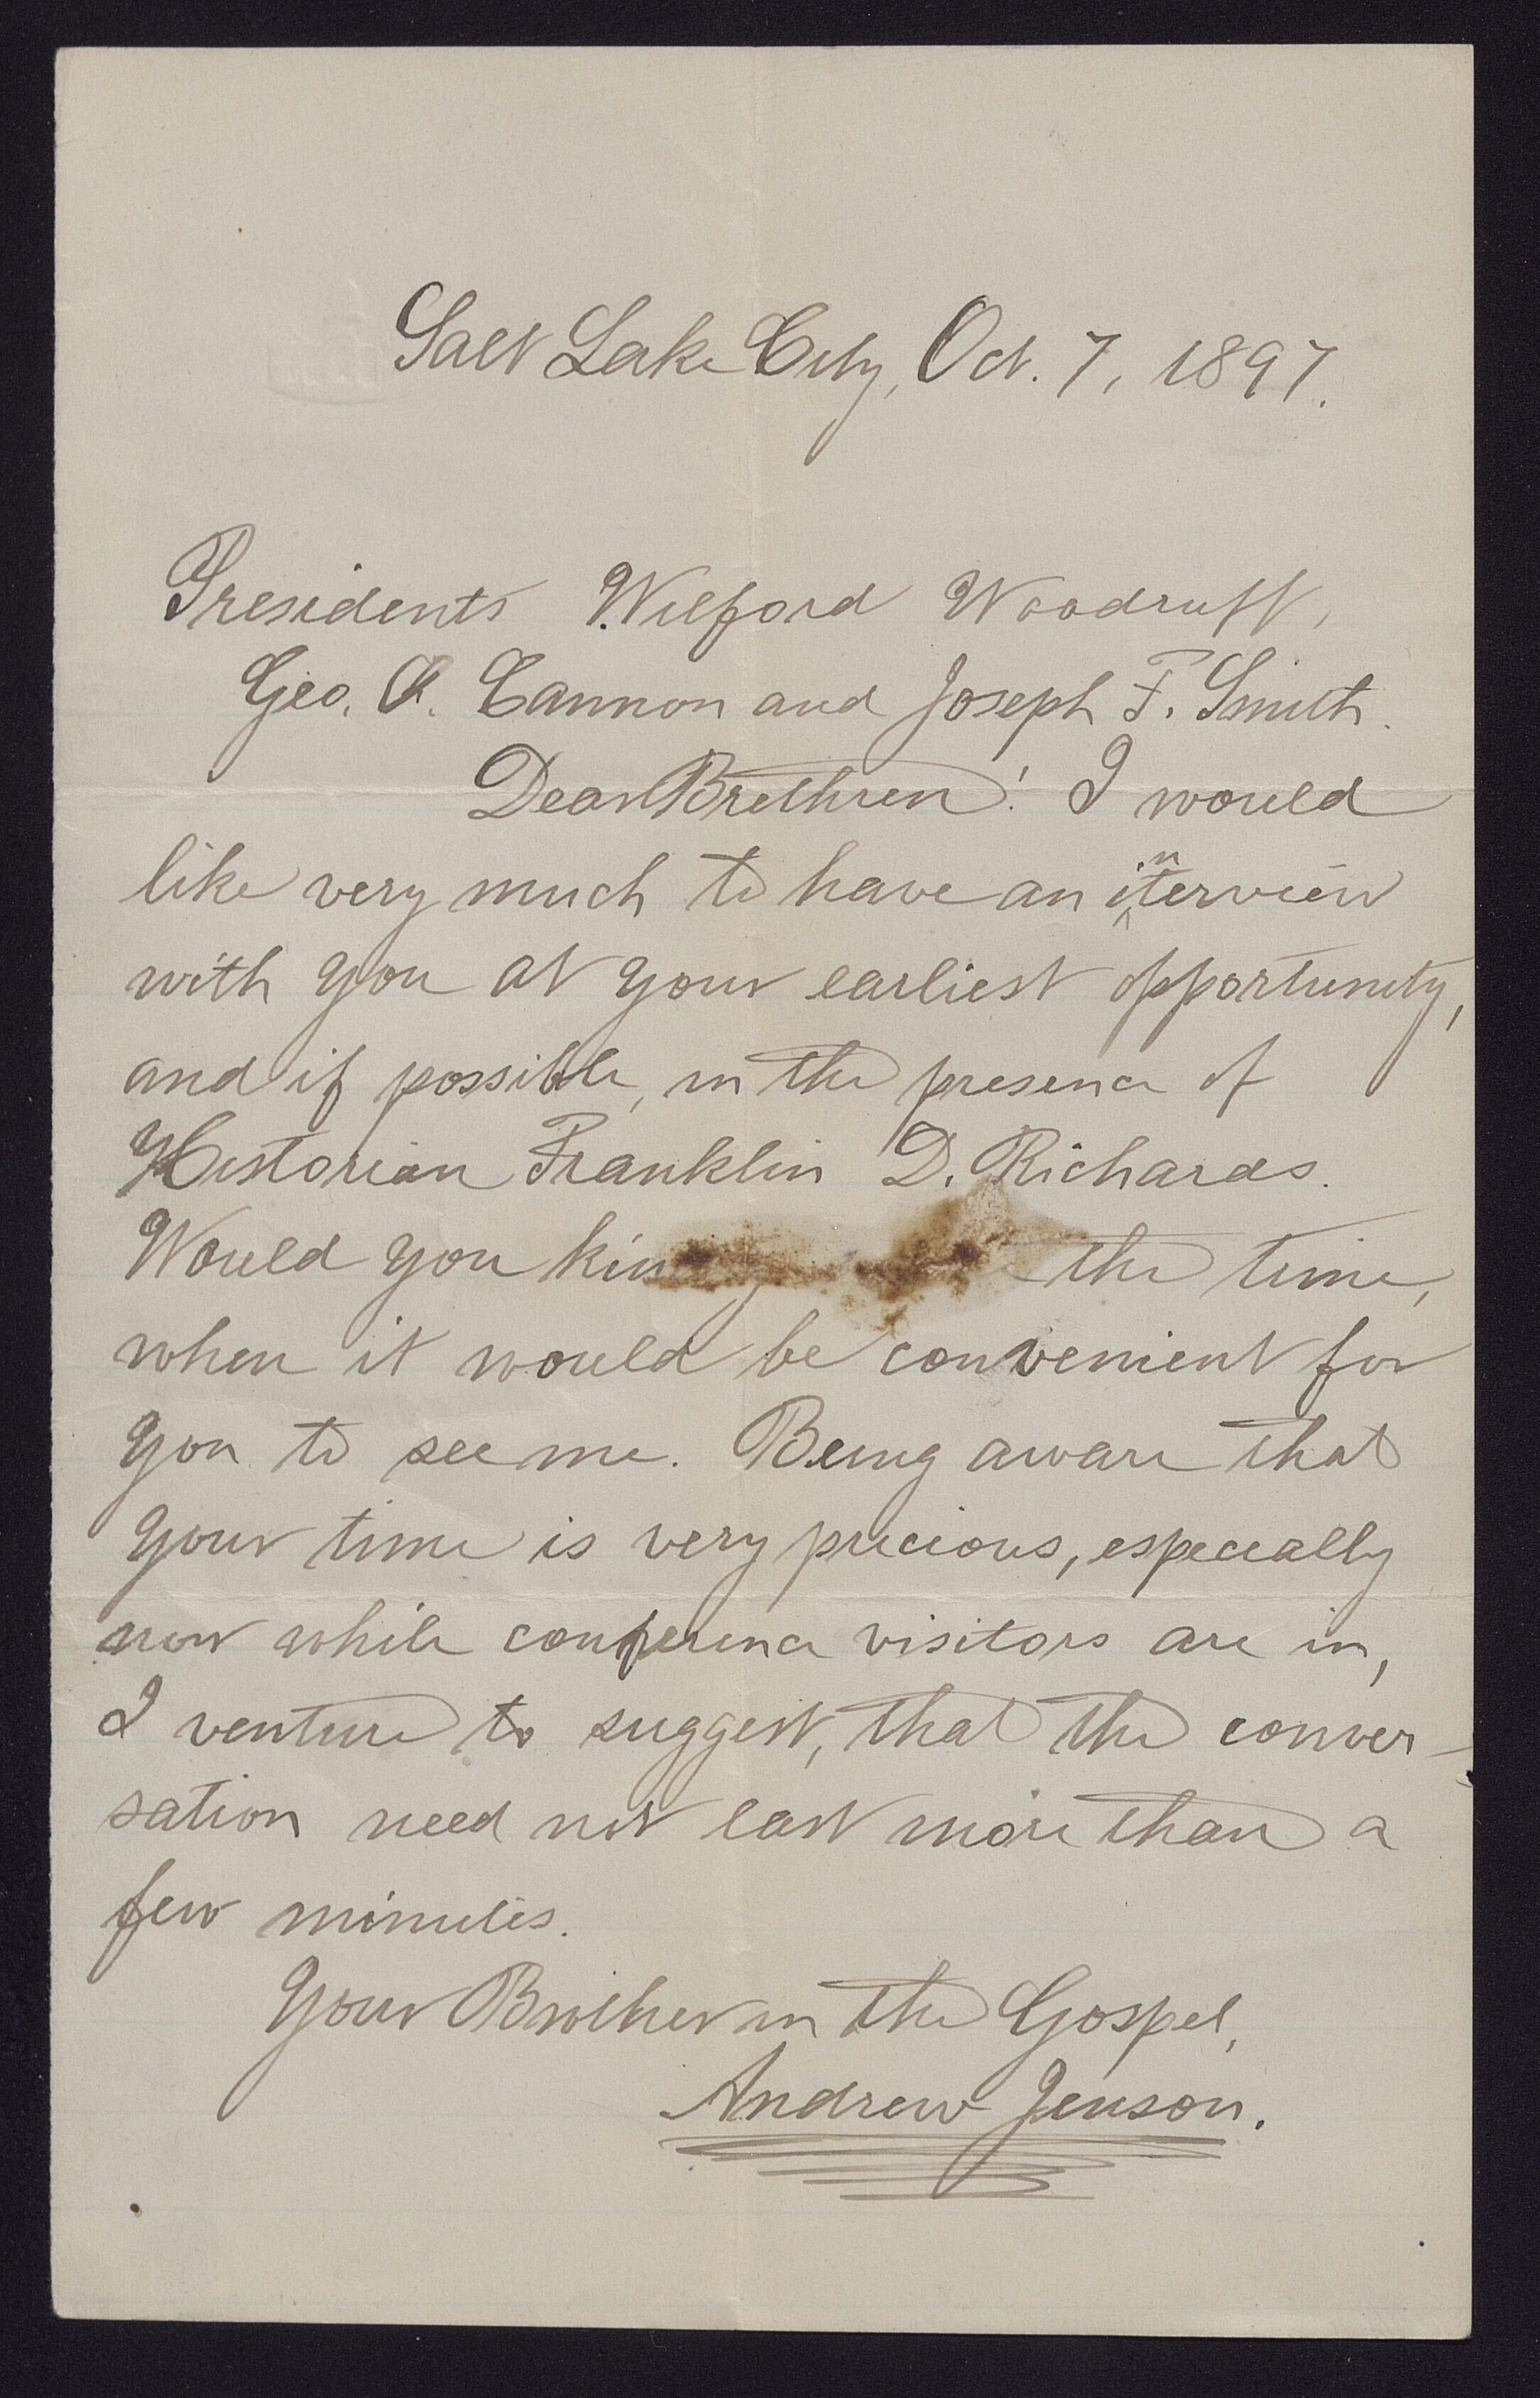 Salt Lake City, Oct. 7, 1897.
Presidents Wilford Woodruff,
Geo. Q. Cannon and Joseph F. Smith.
Dear Brethren! I would
like very much to have an interview
with you at your earliest opportunity,
and if possible, in the presence of
Historian Franklin D. Richards.
Would you the time,
when it would be convenient for
you to see me. Being aware that
your time is very precious, especially
now while conference visitors are in,
I venture to suggest, that the conver-
sation need not last more than a
few minutes.
Your Brother in the Gospel,
Andrew Jenson.